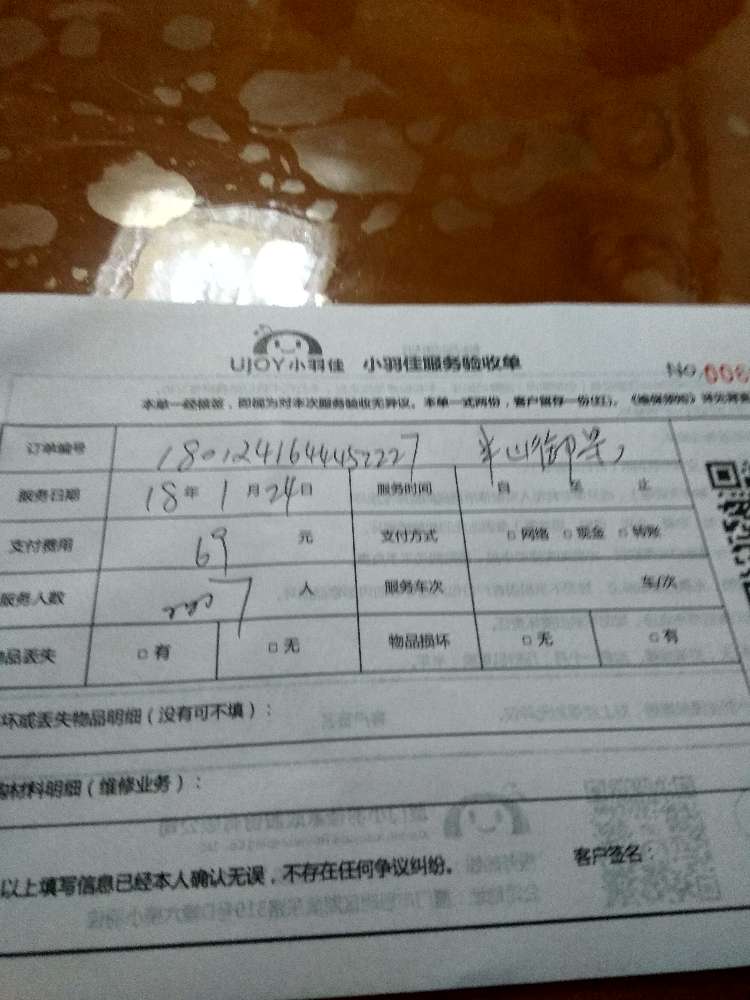 UJOY小羽佳 小羽佳服务验收单 No.006
本单一经被签，即视为对本次服务验收无异议。本单一式两份，客户留存一份(红)。
订单编号 1801241644452227 半山御景
服务日期 18年 1月 24日 服务时间 自 至 止
支付费用 69 元 支付方式 □网络 □现金 □转账
服务人数 人 服务车次 车/次
物品丢失 □有 □无 物品损坏 □无 □有
坏或丢失物品明细（没有可不填）：
材料明细（维修业务）：
以上填写信息已经本人确认无误，不存在任何争议纠纷。 客户签名：